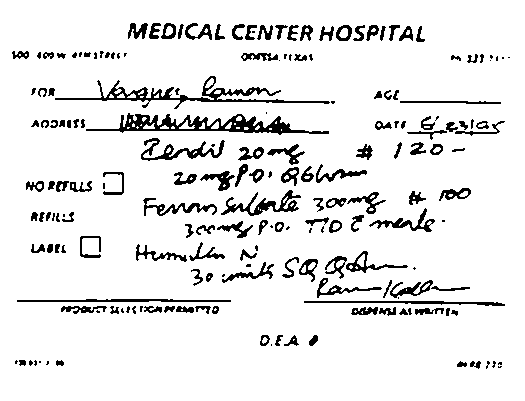 MEDICAL CENTER HOSPITAL
500 600 W. 4TH STREET ODESSA, TEXAS
FOR Vasquez, Ramon AGE
ADDRESS DATE 6/23/95
Isordil 20 mg # 120 -
20 mg P.O. Q6hours
NO REFILLS
Ferrous Sulfate 300 mg # 100
REFILLS
300 mg P.O. TID c meals.
LABEL
Humulin N
30 units SQ
PRODUCT SELECTION PERMITTED DISPENSE AS WRITTEN
D.E.A. #